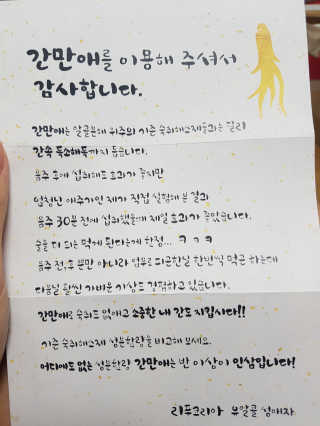 간만애를 이용해 주셔서
감사합니다.
간만애는 알콜분해 위주의 기존 숙취해소제들과는 달리
간속 독소해독까지 돕습니다.
음주 후에 섭취해도 효과가 좋지만
엄청난 애주가인 제가 직접 실험해 본 결과
음주 30분 전에 섭취했을때 제일 효과가 좋았습니다.
술을 더 마는 먹게 된다는게 함정... ㅋㅋㅋ
음주 전,후 뿐만 아니라 업무로 피곤한날 한번씩 먹곤 하는데
다음날 훨씬 가벼운 기상도 경험하고 있습니다.
간만애로 숙취도 없애고 소중한 내 간도 지킵시다!!
기존 숙취해소제 성분함량을 비교해 보세요.
어디에도 없는 성분함량 간만애는 반 이상이 인삼입니다!
리푸코리아 부알콜 성애자